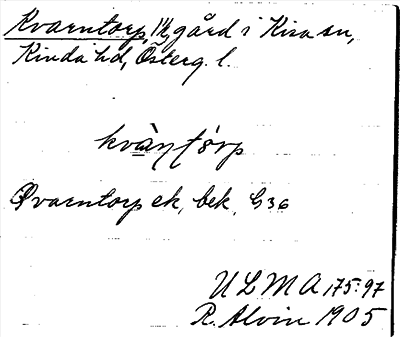 Kvarntorp, gård i Kisa sn,
Kinda hd, Österg. l.
Qvarntorp ek, bek,
ULMA 175:97
R. Alvin 1905